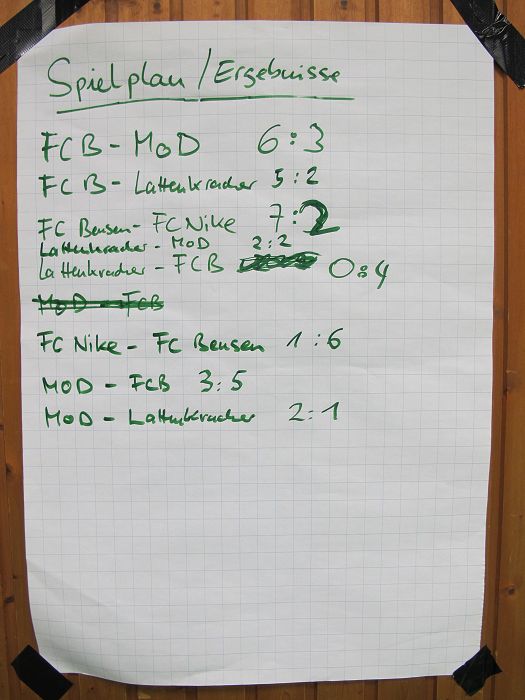 Spielplan / Ergebnisse
FCB - MoD 6:3
FCB - Lattenkracher 5:2
FC Bensen - FC Nike 7:2
Lattenkracher - MoD 2:2
Lattenkracher - FCB 0:4
MoD - FCB
FC Nike - FC Bensen 1:6
MoD - FCB 3:5
MoD - Lattenkracher 2:1